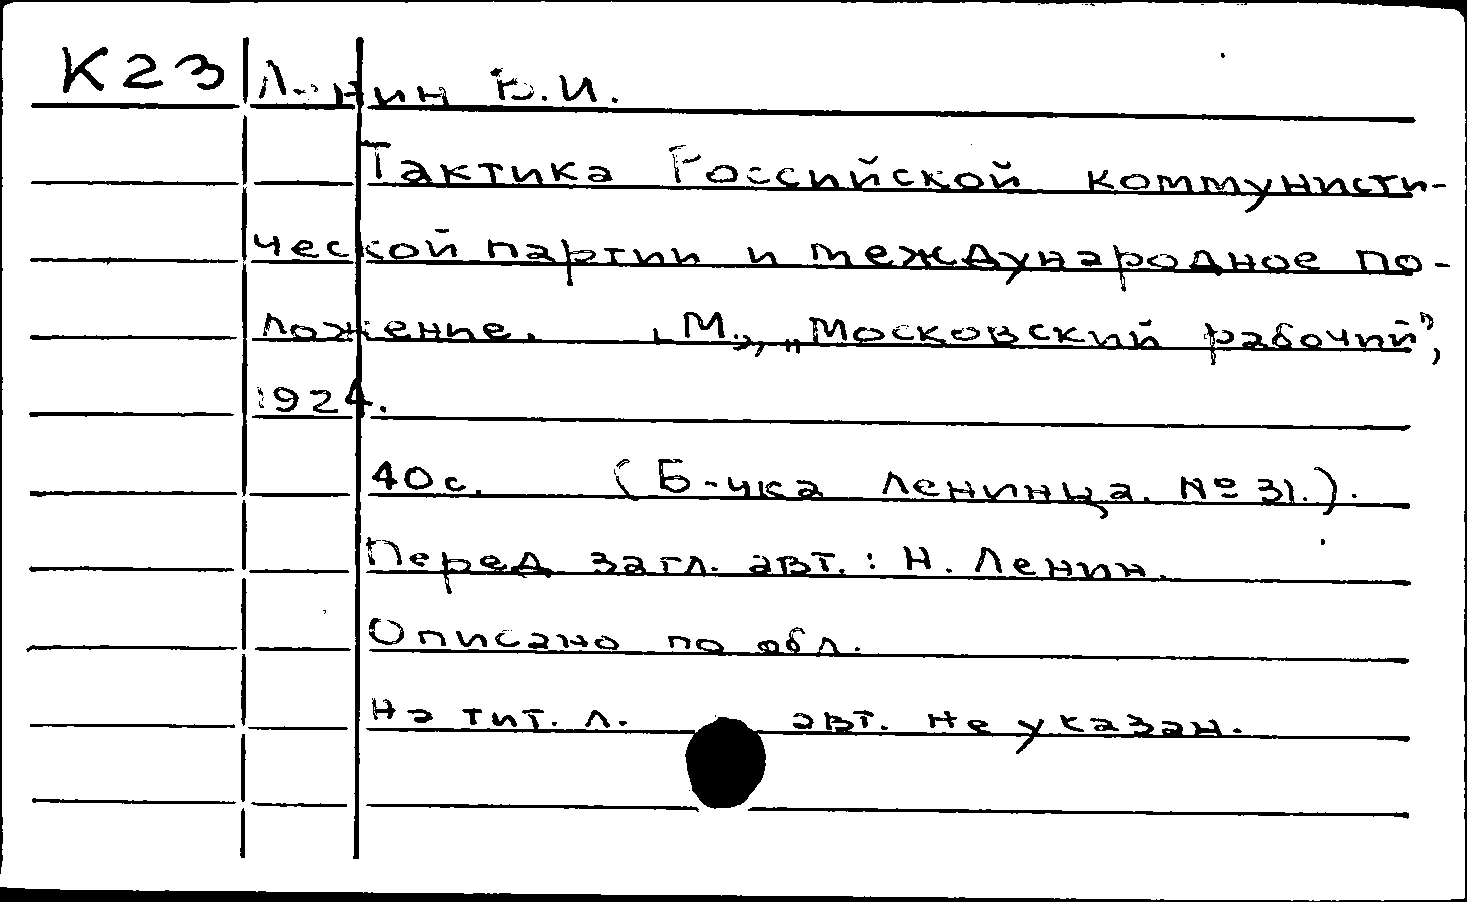 К23 Ленин В.И.
Тактика Российской коммунисти-
ческой партии и международное по-
ложение. М., „Московский рабочий”,
1924.
40с. (Б-чка ленинца. № 31.).
Перед загл. авт.: Н. Ленин.
Описано по обл.
На тит. л. авт. не указан.